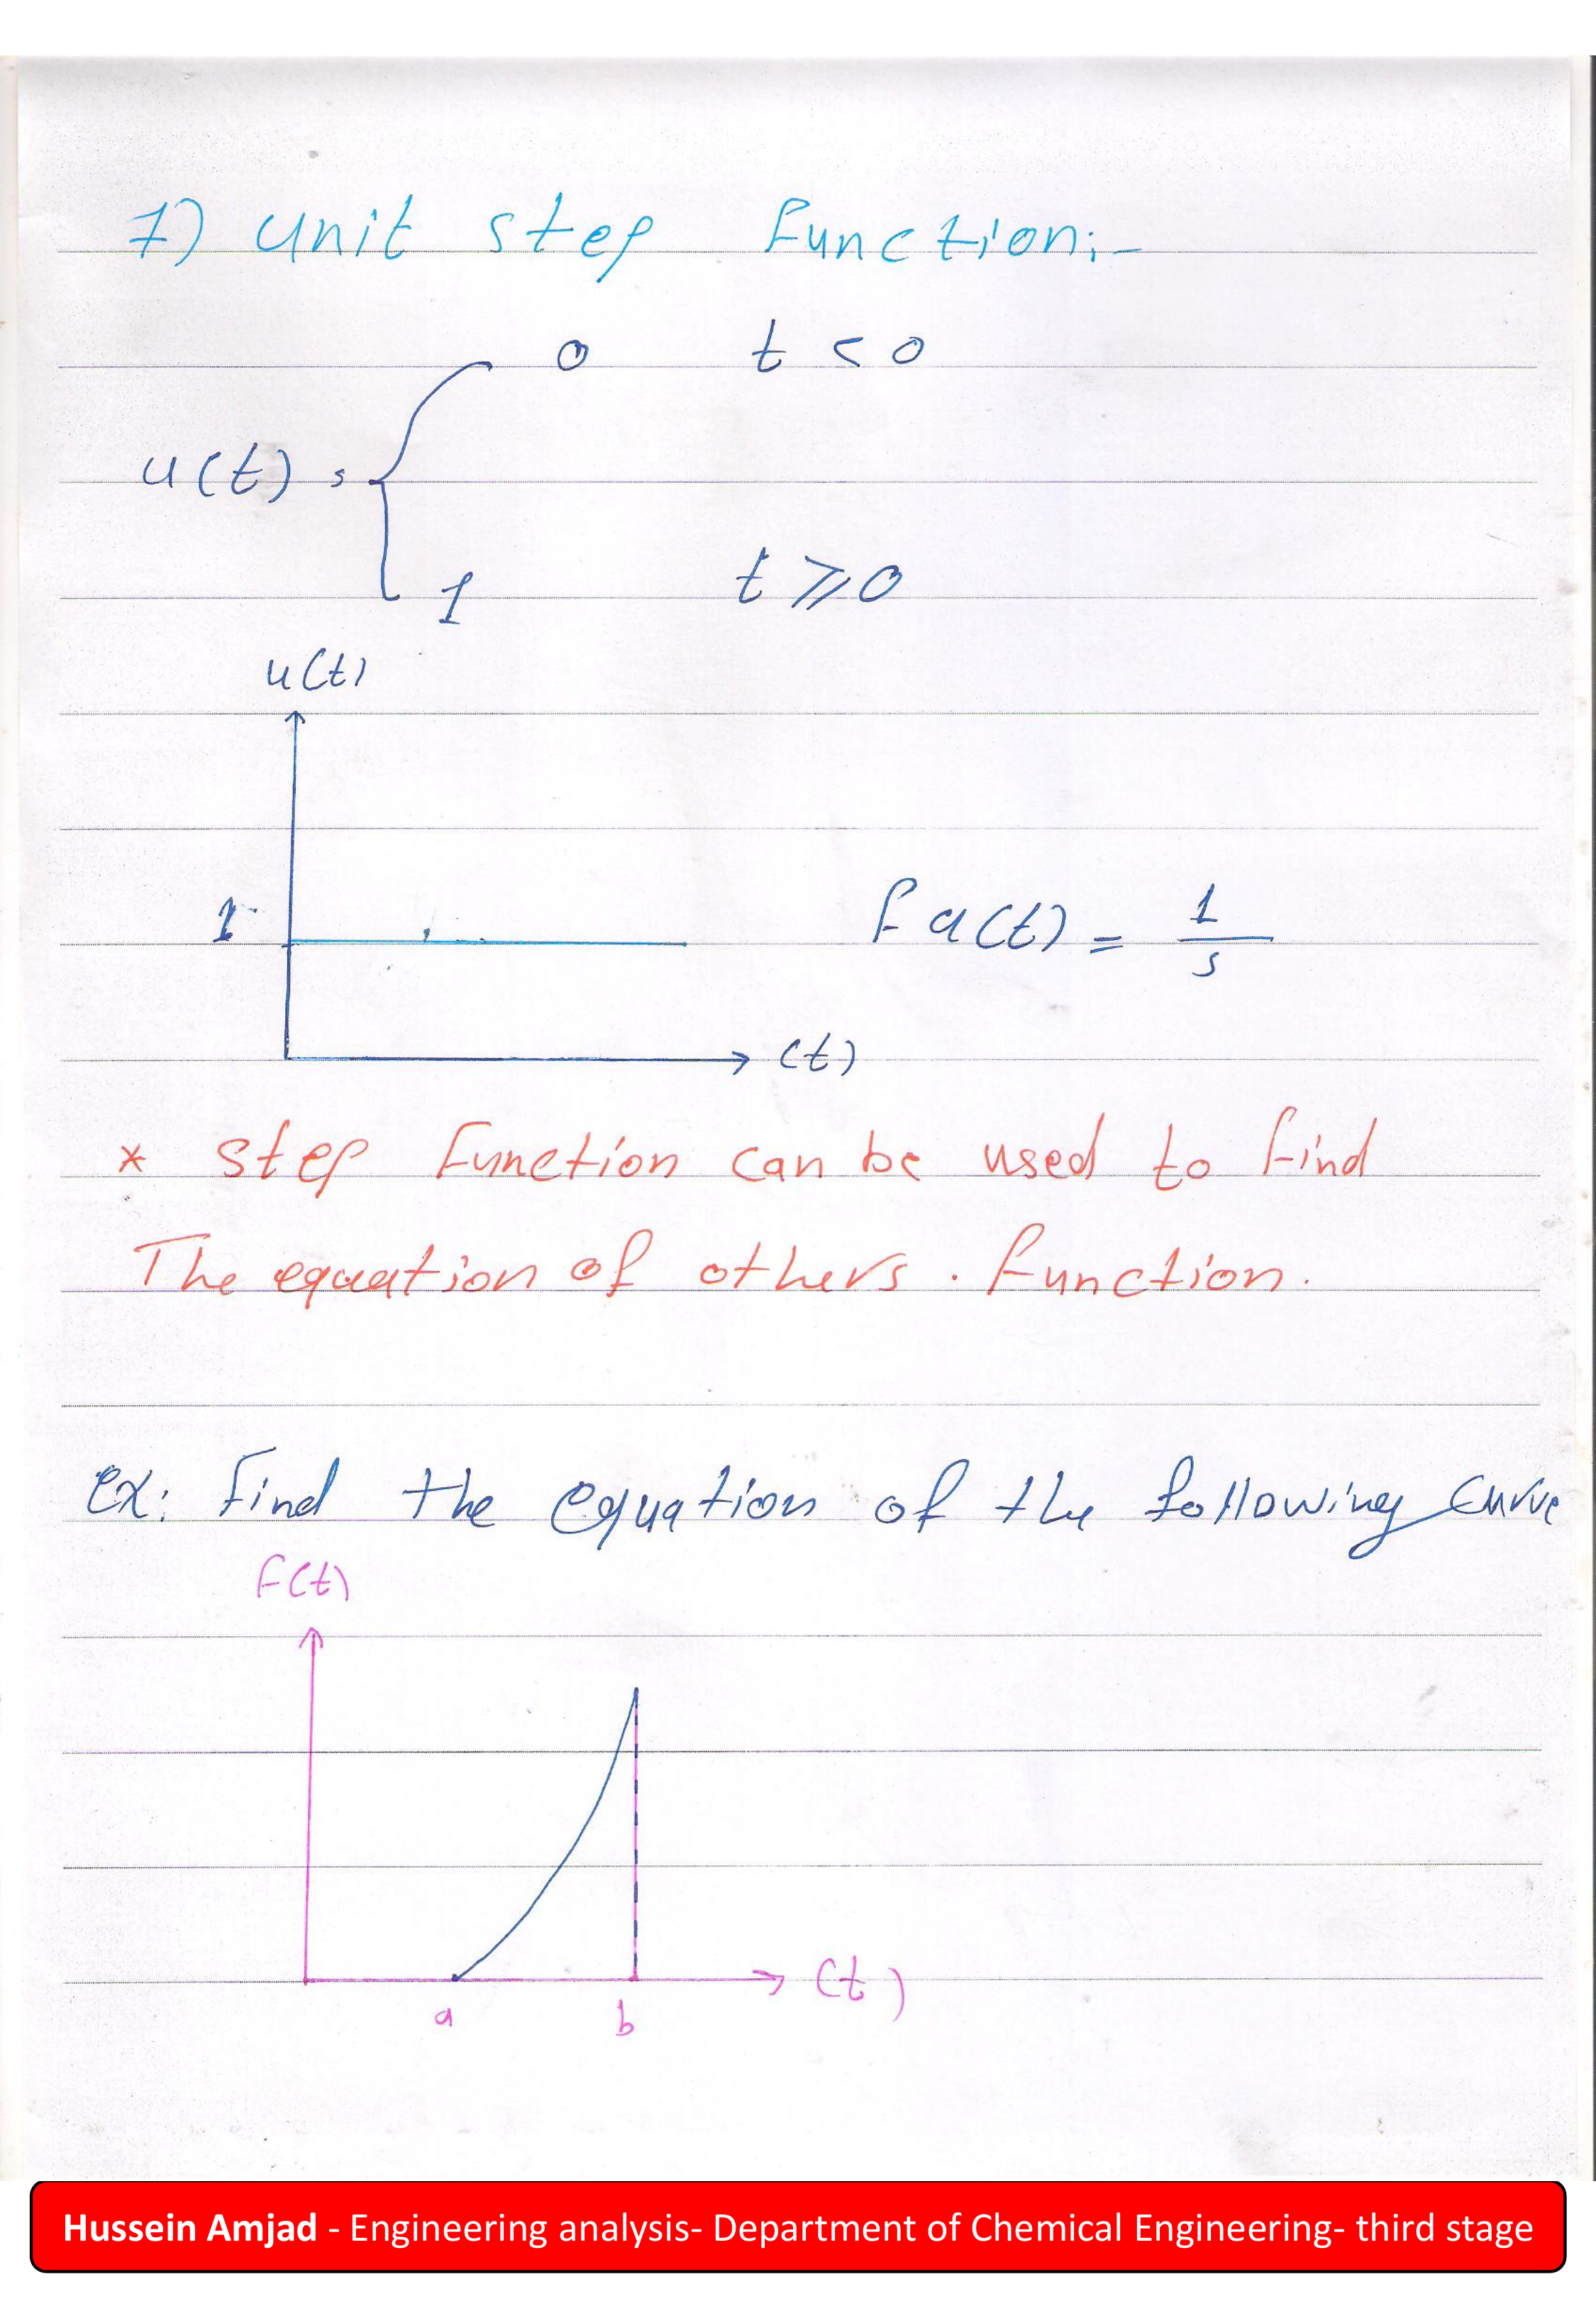 7) unit step function:-
0 t < 0
u(t) =
1 t ≥ 0
u(t)
1
f u(t) = 1/s
(t)
* step function can be used to find
The equation of others . function.
ex: find the equation of the following curve
F(t)
(t)
a b
Hussein Amjad - Engineering analysis- Department of Chemical Engineering- third stage